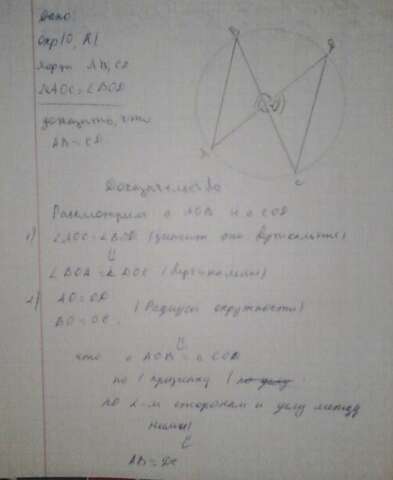 Дано:
Окр(O, R)
хорды AB, CD
∠AOC=∠BOD
доказать, что
AB=CD
A
C
Доказательство
Рассмотрим △ AOB и △ COD
1) ∠AOC=∠BOD (значит они вертикальные)
⇓
∠BOA=∠DOC (вертикальны)
2) AO=OD
BO=OC. (Радиусы окружности)
⇓
что △ AOB=△ COD
по 1 признаку (по углу
по 2-м сторонам и углу между
ними)
⇓
AB=DC